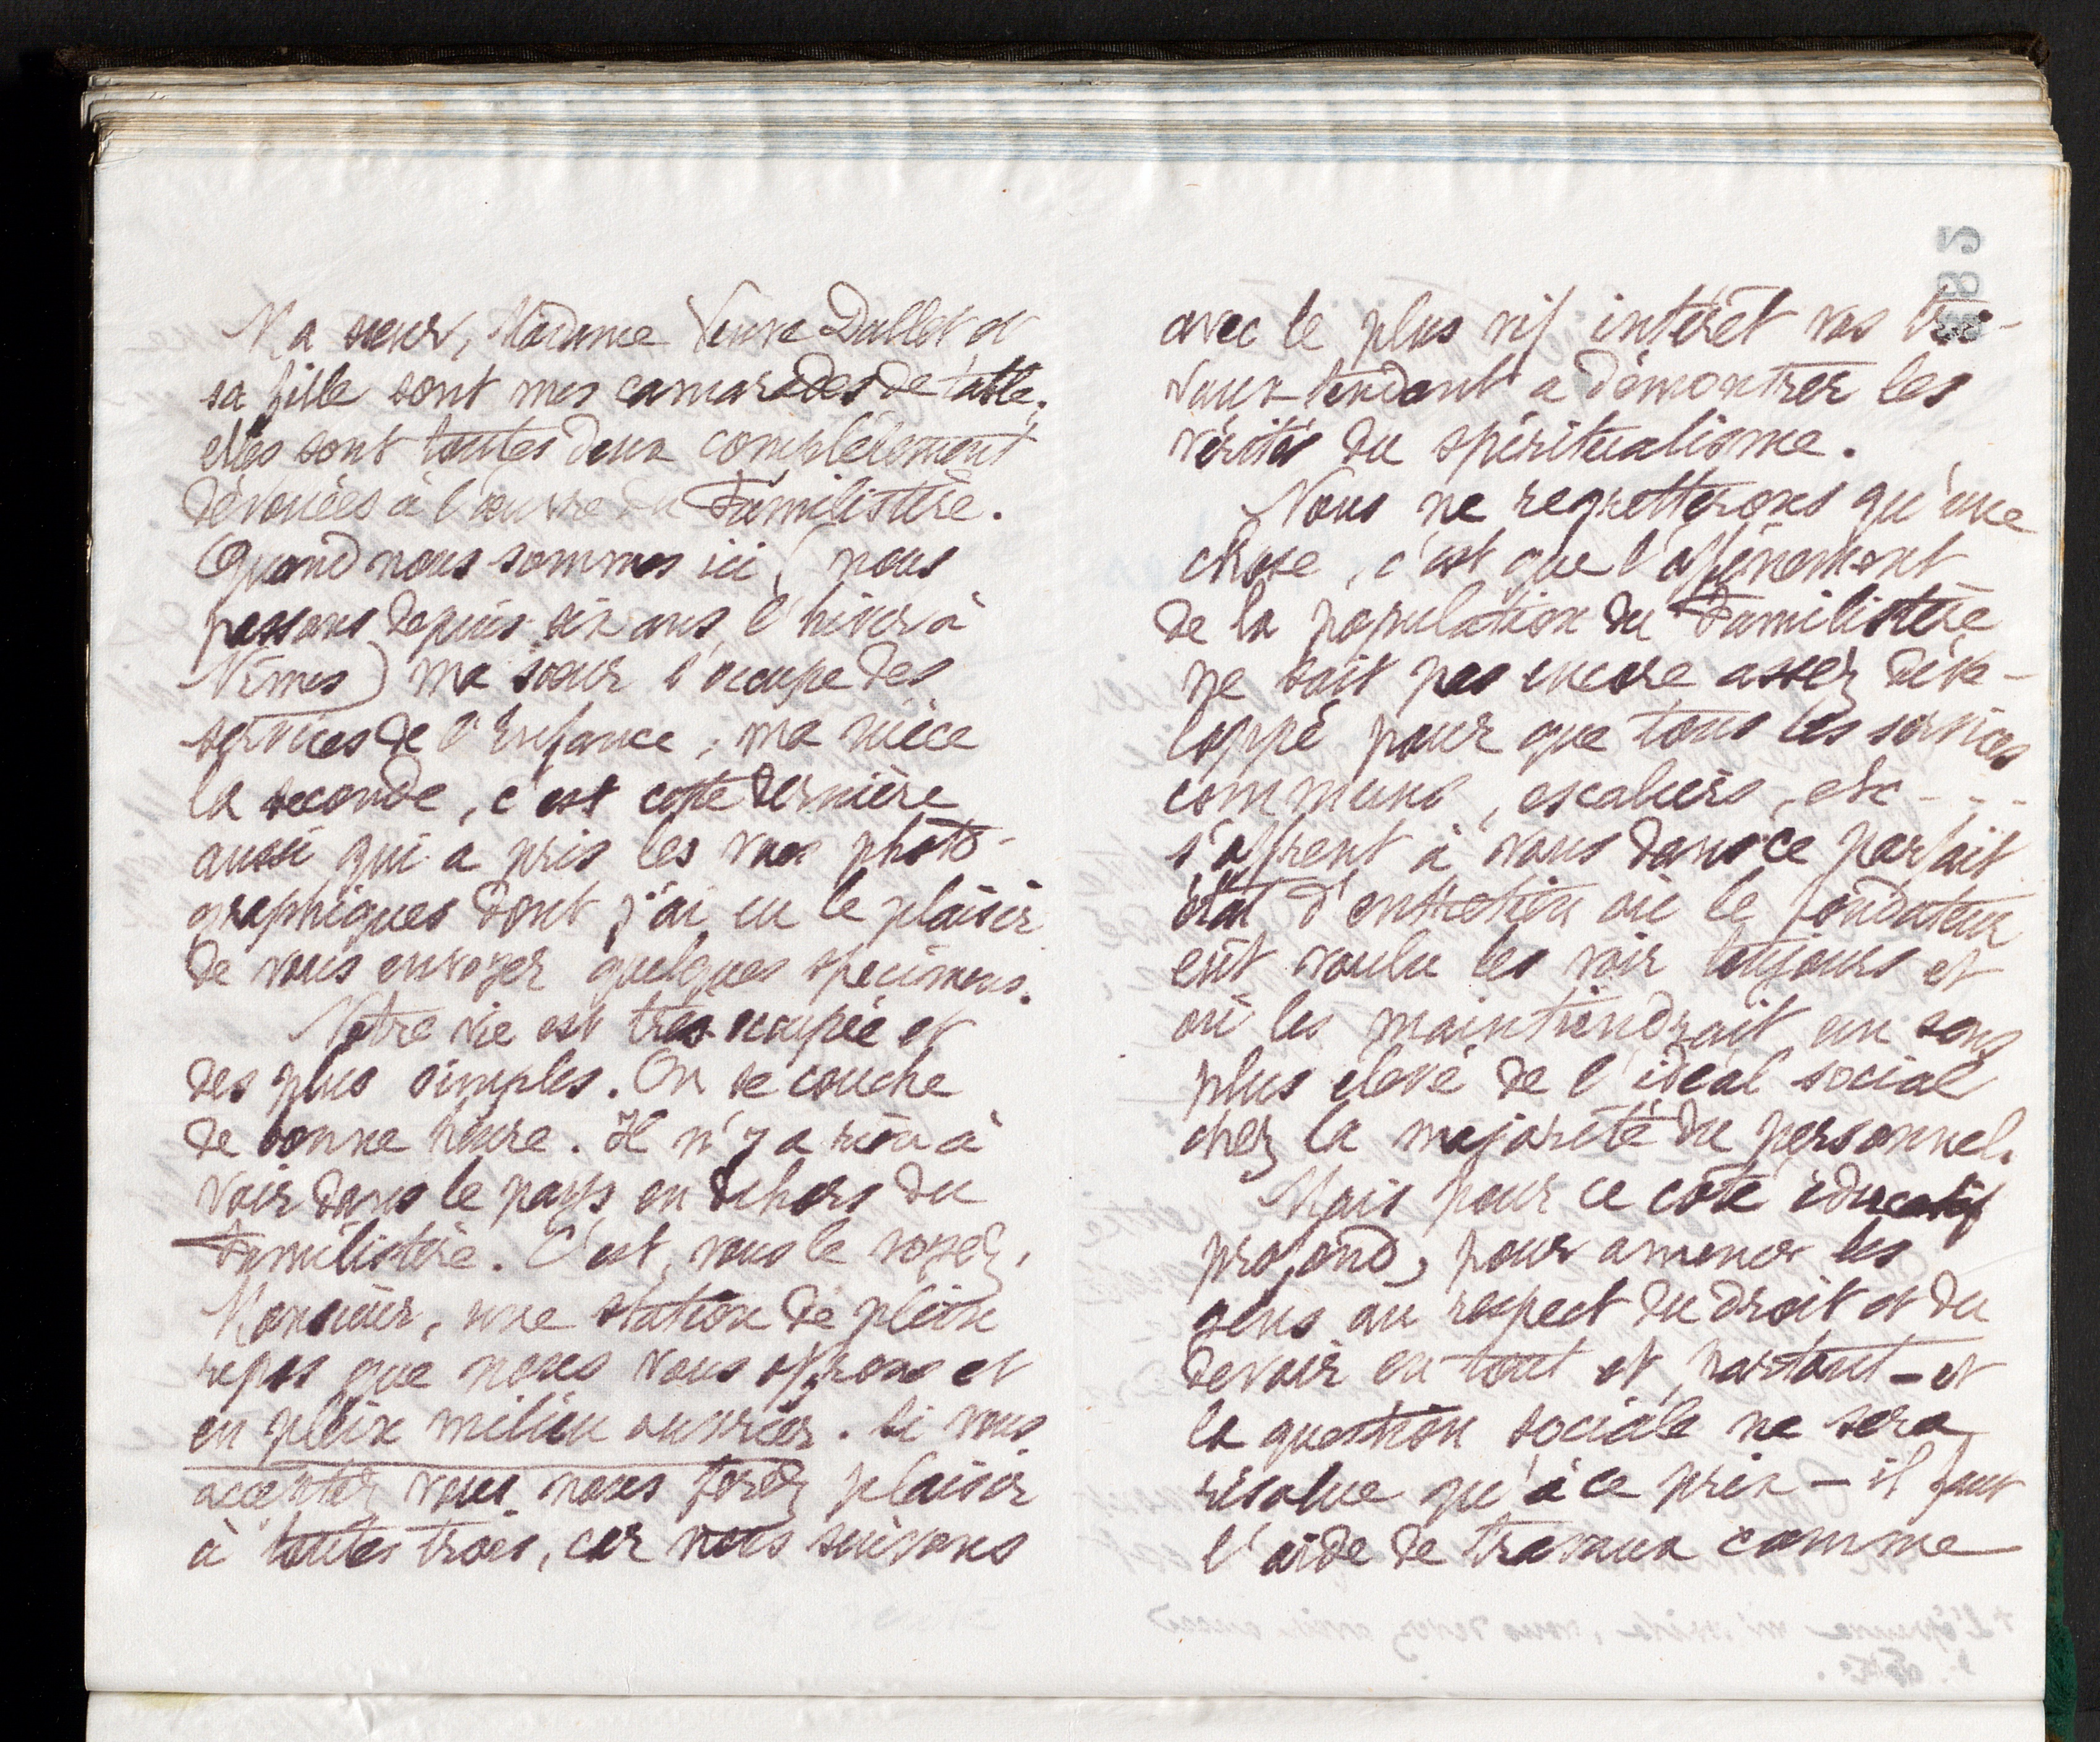 Ma sœur, Madame Veuve Dallet et
sa fille sont mes camarades de table,
elles sont toutes deux complètement
dévouées à l'œuvre du Familistère.
Quand nous sommes ici (nous
passons depuis six ans, l'hiver à
Nîmes) ma sœur s'occupe des
services de l'Enfance, ma nièce
la seconde, c'est cette dernière
aussi qui a pris les vues photo-
graphiques dont j'ai eu le plaisir
de vous envoyer quelques spécimens.
Notre vie est très occupée et
des plus simples. On se couche
de bonne heure. Il n'y a rien à
voir dans le pays en dehors du
Familistère. C'est, vous le voyez,
Monsieur, une station de plein
repos que nous vous offrons et
en plein milieu ouvrier. Si vous
acceptez vous nous ferez plaisir
à toutes trois, car nous suivons
avec le plus vif intérêt vos tra-
vaux tendant à démontrer les
vérités du spiritualisme.
Nous ne regretterons qu'une
chose, c'est que l'affinement
de la population du Familistère
ne soit pas encore assez déve-
loppé pour que tous les services
communs, escaliers, etc - - -
s'offrent à vous dans ce parfait
état d'entretien où le fondateur
eût voulu les voir toujours et
où les maintiendrait un sens
plus élevé de l'idéal social
chez la majorité du personnel.
Mais pour ce côté éducatif
profond, pour amener les
gens au respect du droit et du
devoir en tout et partout - et
la question sociale ne sera
résolue qu'à ce prix - il faut
l'aide de travaux comme